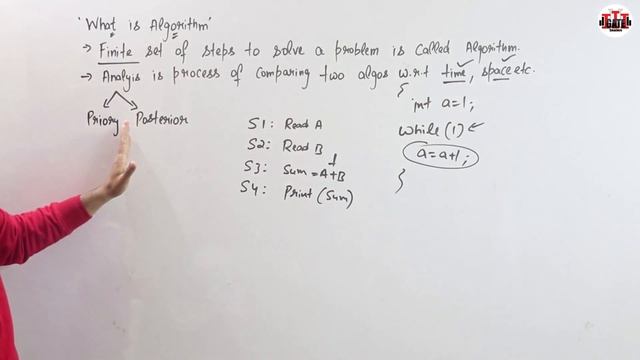 'What is Algorithm'
→ Finite set of steps to solve a problem is called Algorithm.
→ Analyis is process of comparing two algos w.r.t time, space etc.
Priory Posterior
S1: Read A
S2: Read B
S3: Sum = A+B
S4: Print (Sum)
{
int a=1;
while(1)
a=a+1;
}
GATE